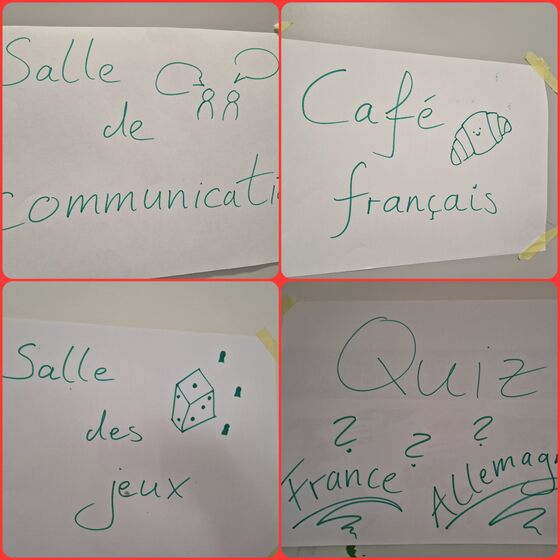 Salle
de
communicati
Café
français
Salle
des
jeux
Quiz
? ? ?
France Allemag